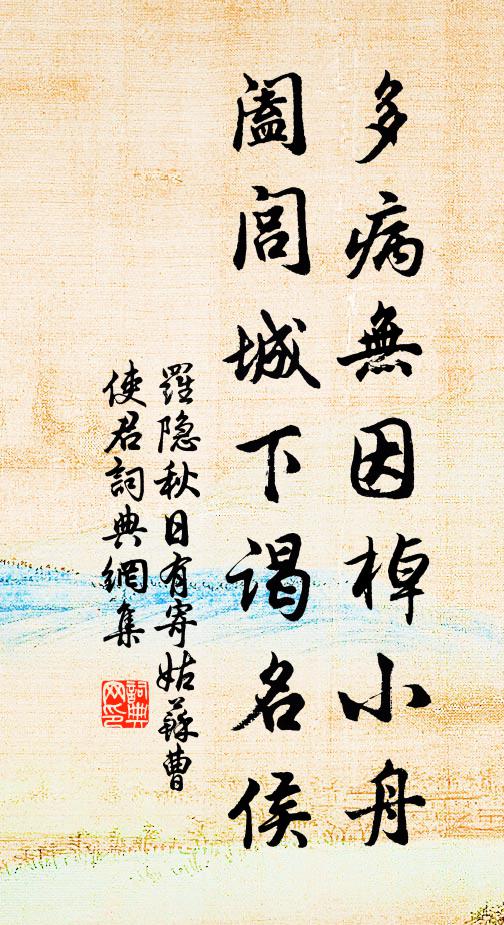 多病無因棹小舟
闔閭城下谒名侯
羅隐秋日有寄姑蘇曹
使君詞典網集
詞典
网印